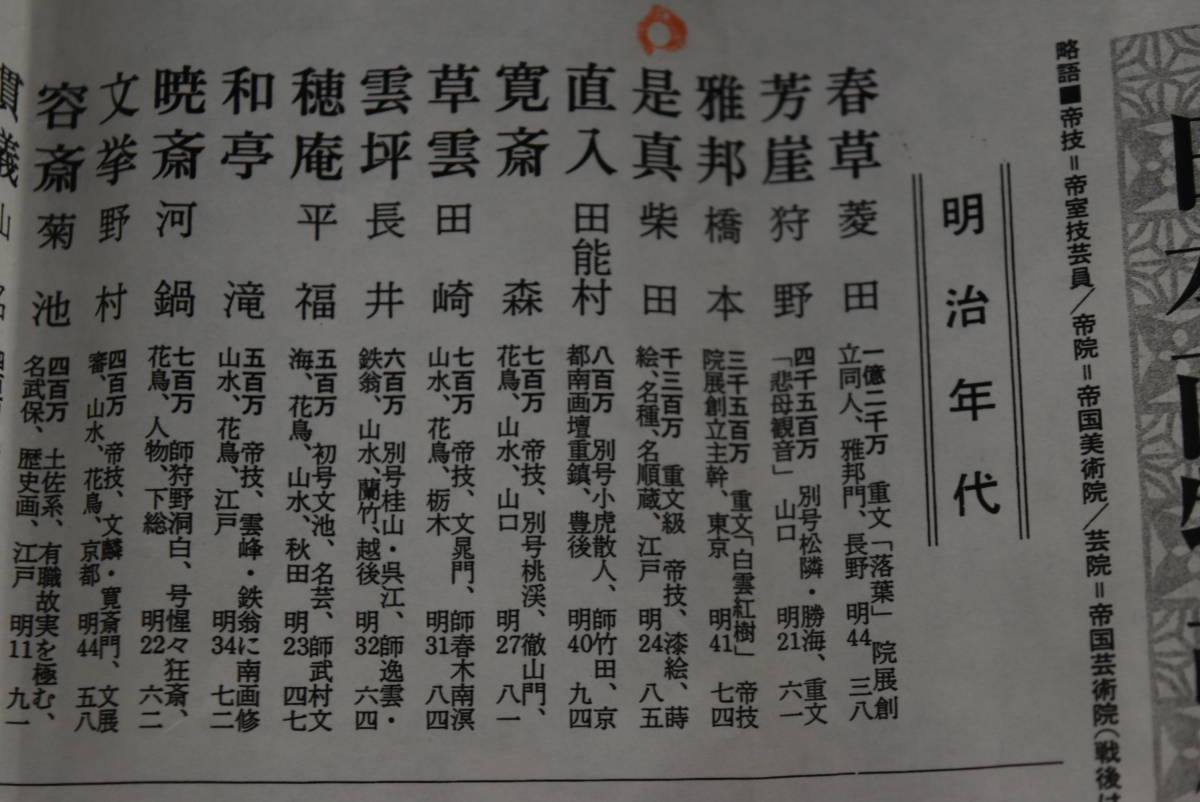 略語■帝技＝帝室技芸員／帝院＝帝国美術院／芸院＝帝国芸術院(戦後は
明治年代
春草 菱田 一億二千万 重文「落葉」 院展創
立同人、雅邦門、長野 明44 三八
芳崖 狩野 四千五百万 別号松隣・勝海、重文
「悲母観音」 山口 明21 六一
雅邦 橋本 三千五百万 重文「白雲紅樹」 帝技
院展創立主幹、東京 明41 七四
是真 柴田 千三百万 重文級 帝技、漆絵、蒔
絵、名種、名順蔵、江戸 明24 八五
直入 田能村 八百万 別号小虎散人、師竹田、京
都南画壇重鎮、豊後 明40 九四
寛斎 森 七百万 帝技、別号桃渓、徹山門、
花鳥、山水、山口 明27 八一
草雲 田崎 七百万 帝技、文晁門、師春木南溟
山水、花鳥、栃木 明31 八四
雲坪 長井 六百万 別号桂山・呉江、師逸雲・
鉄翁、山水、蘭竹、越後 明32 六四
穂庵 平福 五百万 初号文池、名芸、師武村文
海、花鳥、山水、秋田 明23 四七
和亭 滝 五百万 帝技、雲峰・鉄翁に南画修
山水、花鳥、江戸 明34 七二
暁斎 河鍋 七百万 師狩野洞白、号惺々狂斎、
花鳥、人物、下総 明22 六二
文挙 野村 四百万 帝技、文麟・寛斎門、文展
審、山水、花鳥、京都 明44 五八
容斎 菊池 四百万 土佐系、有職故実を極む、
名武保、歴史画、江戸 明11 九一